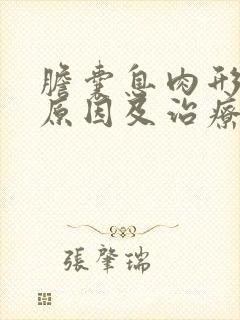 膽囊息肉形
原因及治療
張肇瑞